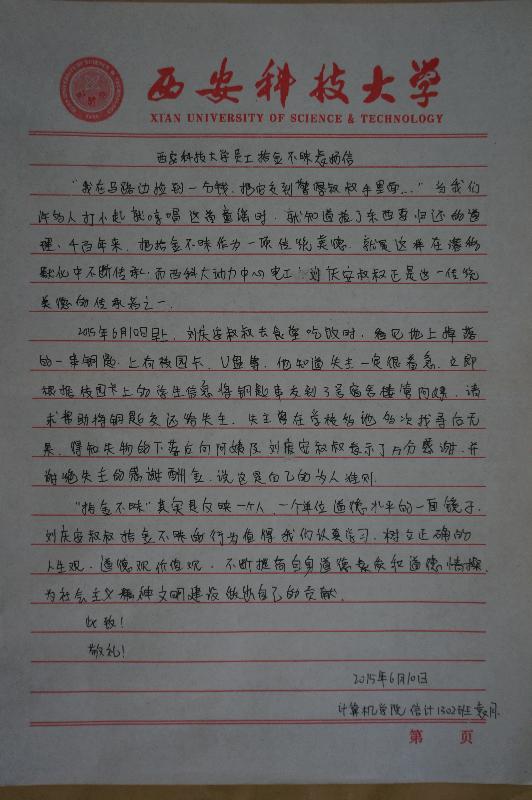 西安科技大学
XIAN UNIVERSITY OF SCIENCE & TECHNOLOGY
西安科技大学员工拾金不昧表扬信
“我在马路边捡到一个钱，把它交到警察叔叔手里面...”当我们
许多人打小起就哼唱这首童谣时，就知道捡了东西要归还的道
理。千百年来，把拾金不昧作为一项传统美德，就是这样在潜移
默化中不断传承。而西科大动力中心电工：刘庆安叔叔正是这一传统
美德的传承者之一。
2015年6月10日早上，刘庆安叔叔去食堂吃饭时，看见地上掉落
的一串钥匙，上有校园卡、U盘等，他知道失主一定很着急，立即
根据校园卡上的学生信息将钥匙串交到了3号宿舍楼管阿姨，请
求帮助将钥匙交还给失主。失主曾在学校多地多次找寻后无
果，得知失物的下落后向阿姨及刘庆安叔叔表示了万分感谢，并
谢绝失主的感谢酬金，说这是自己的为人准则。
“拾金不昧”其实是反映一个人，一个单位道德水平的一面镜子，
刘庆安叔叔拾金不昧的行为值得我们认真学习，树立正确的
人生观、道德观价值观，不断提高自身道德素质和道德情操，
为社会主义精神文明建设做出自己的贡献。
此致！
敬礼！
2015年6月10日
计算机学院 信计1302班
第 页